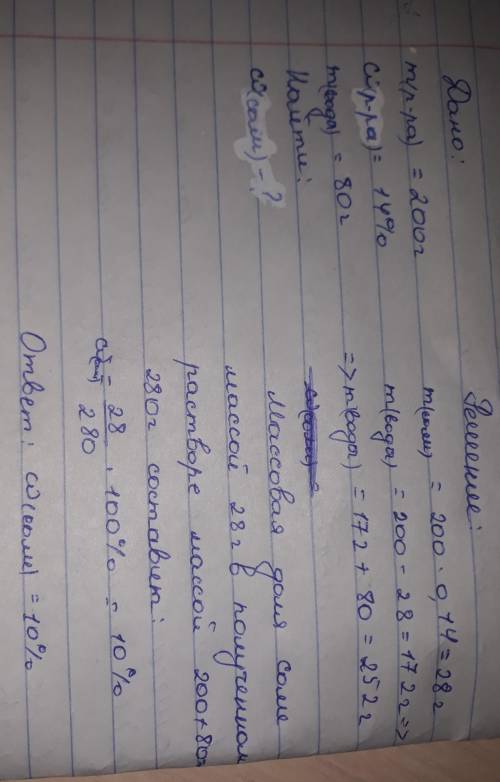 Дано:
m(р-ра) = 200г
ω(р-ра) = 14%
m(воды) = 80г
Найти:
ω(соли) - ?
Решение:
m(соли) = 200 · 0,14 = 28г
m(воды) = 200 - 28 = 172г =>
=> m(воды) = 172 + 80 = 252г
Массовая доля соли
массой 28г в полученном
растворе массой 200+80г
280г составит:
ω(соли) = 28/280 · 100% = 10%
Ответ: ω(соли) = 10%